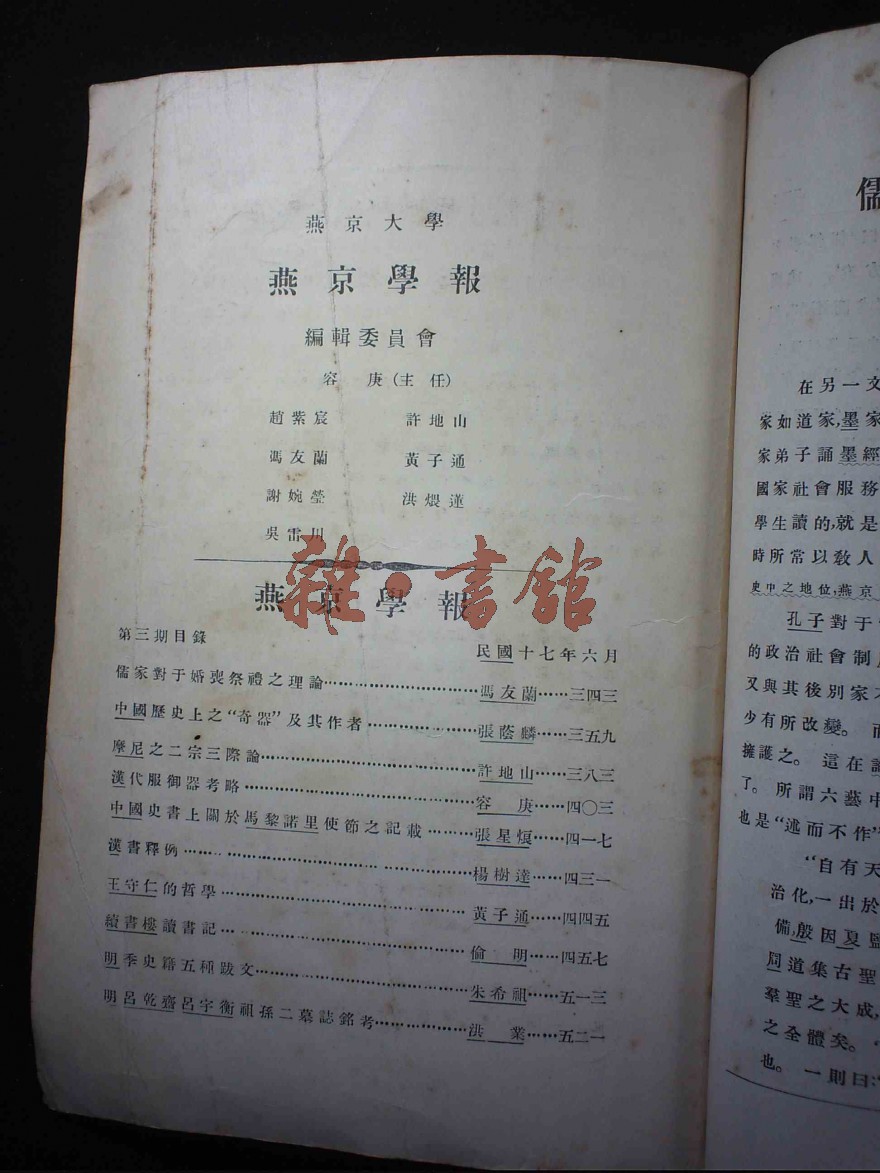 燕京大學
燕京學報
編輯委員會
容 庚(主 任)
趙紫宸 許地山
馮友蘭 黃子通
謝婉瑩 洪煨蓮
吳雷川
雜·書館
燕京學報
第三期目錄 民國十七年六月
儒家對于婚喪祭禮之理論……………馮友蘭……三四三
中國歷史上之“奇器”及其作者……………張蔭麟……三五九
摩尼之二宗三際論……………許地山……三八三
漢代服御器考略……………容 庚……四〇三
中國史書上關於馬黎諾里使節之記載………張星烺……四一七
漢書釋例……………楊樹達……四三一
王守仁的哲學……………黃子通……四四五
續書樓讀書記……………倫 明……四五七
明季史籍五種跋文……………朱希祖……五一三
明呂乾齋呂宇衡祖孫二墓誌銘考……………洪 業……五二一
儒
在另一文
家如道家,墨家
家弟子誦墨經
國家社會服務
學生讀的,就是
時所常以敎人
史中之地位,燕京
孔子對于
的政治社會制
又與其後別家
少有所改變。
擁護之。 這在
了。 所謂六藝中
也是“述而不作”
“自有天
治化,一出於
備,殷因夏監
周道集古聖
羣聖之大成,
之全體矣。
也。 一則曰: